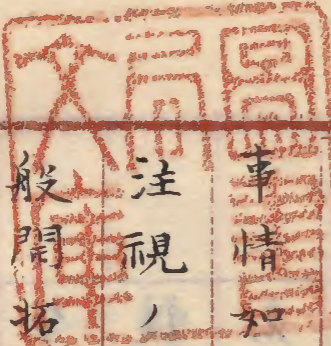 事情如
注視ノ
般開拓